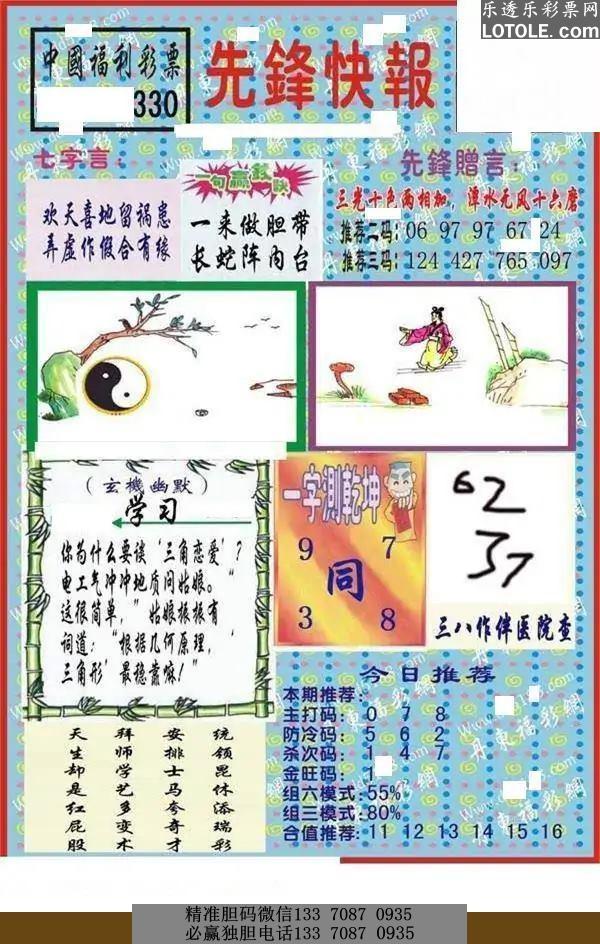 乐透乐彩票网
LOTOLE.COM
中國福利彩票
330
先鋒快報
七字言：
欢天喜地留祸患
弄虚作假合有缘
一句赢钱诀
一来做胆带
长蛇阵内台
先鋒贈言：
三光十色两相加，潭水无风十六磨
推荐二码：06 97 97 67 24
推荐三码：124 427 765 097
（玄機幽默）
学习
你为什么要谈‘三角恋爱’？
电工气冲冲地质问姑娘。“
这很简单，”姑娘振振有
词道：“根据几何原理，‘
三角形’最稳靠嘛！”
一字測乾坤
9 7
同
3 8
62
37
三八作伴医院查
天生却是红屁股
拜师学艺多变术
安排士马夸奇才
统领昆休添瑞彩
今日推荐
本期推荐：
主打码：0 7 8
防冷码：5 6 2
杀次码：1 4 7
金旺码：1
组六模式：55%
组三模式：80%
合值推荐：11 12 13 14 15 16
丹东福彩網
精准胆码微信133 7087 0935
必赢独胆电话133 7087 0935